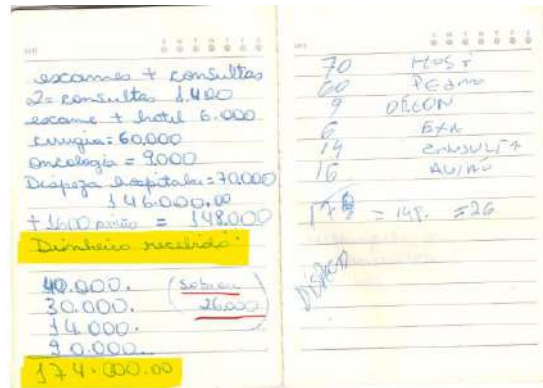 exames + consultas
2= consultas 1.400
exame + hotel 6.000
cirurgia: 60.000
oncologia = 9000
Dispeza hospitalar = 70.000
146.000.00
+ 1600 avião = 148.000
Dinheiro recebido:
40.000.
30.000.
14.000.
90.000.
174.000.00
sobrou
26.000
70 HOSP
60 PEDRO
9
6 EXA
14 CONSULTA
16 AVIÃO
= 148. = 26